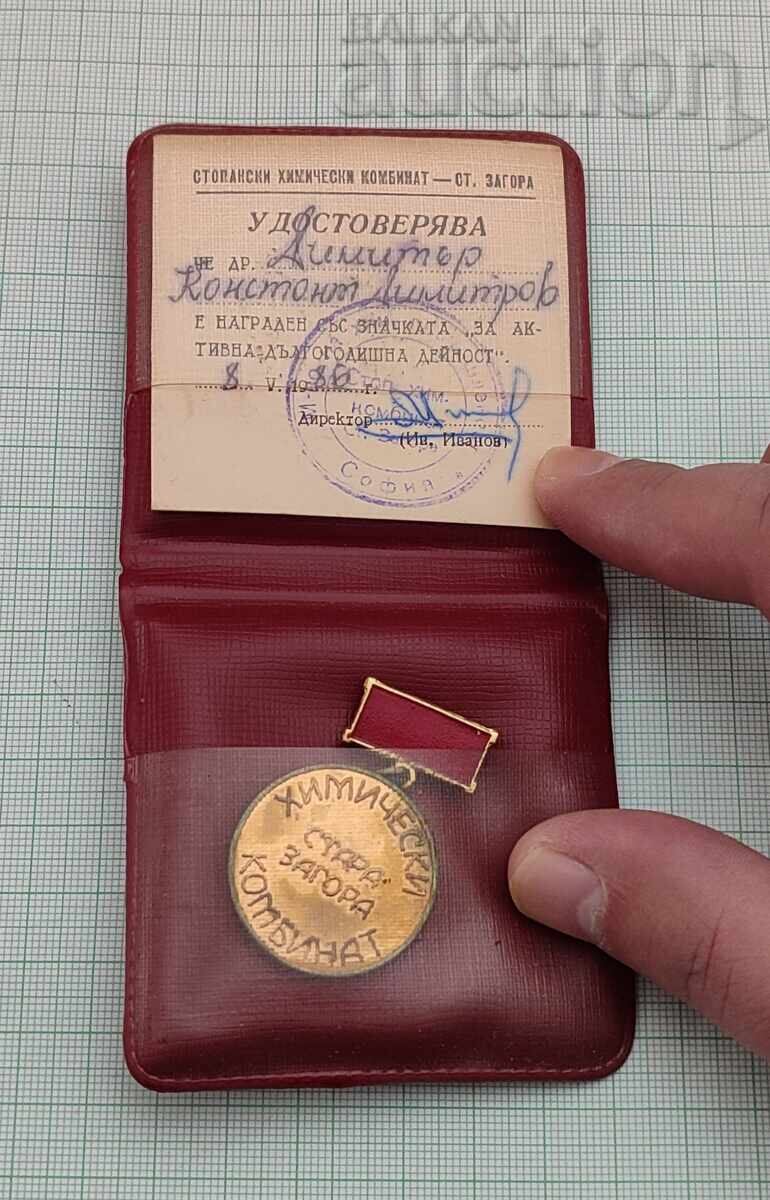 BALKAN
auction
СТОПАНСКИ ХИМИЧЕСКИ КОМБИНАТ — СТ. ЗАГОРА
УДОСТОВЕРЯВА
ЧЕ ДР. Димитър
Констант Димитров
Е НАГРАДЕН СЪС ЗНАЧКАТА „ЗА АК-
ТИВНА ДЪЛГОГОДИШНА ДЕЙНОСТ".
8 V. 1986 г.
Директор
(Ив. Иванов)
Стоп. хим.
София
ХИМИЧЕСКИ
СТАРА
ЗАГОРА
КОМБИНАТ